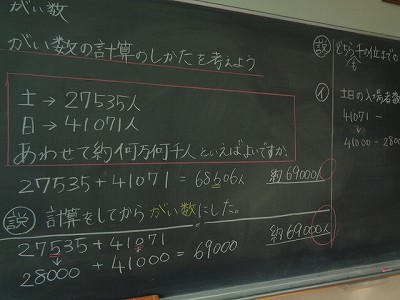 がい数
がい数の計算のしかたを考えよう
土→27535人
日→41071人
あわせて約何万何千人といえばよいですか。
27535+41071=68606人 約69000人
説 計算をしてからがい数にした。
27535+41071
↓ ↓
28000+41000=69000 約69000人
説 どちらも千の位までの
イ
土日の入場者数
41071-
↓
41000-2800